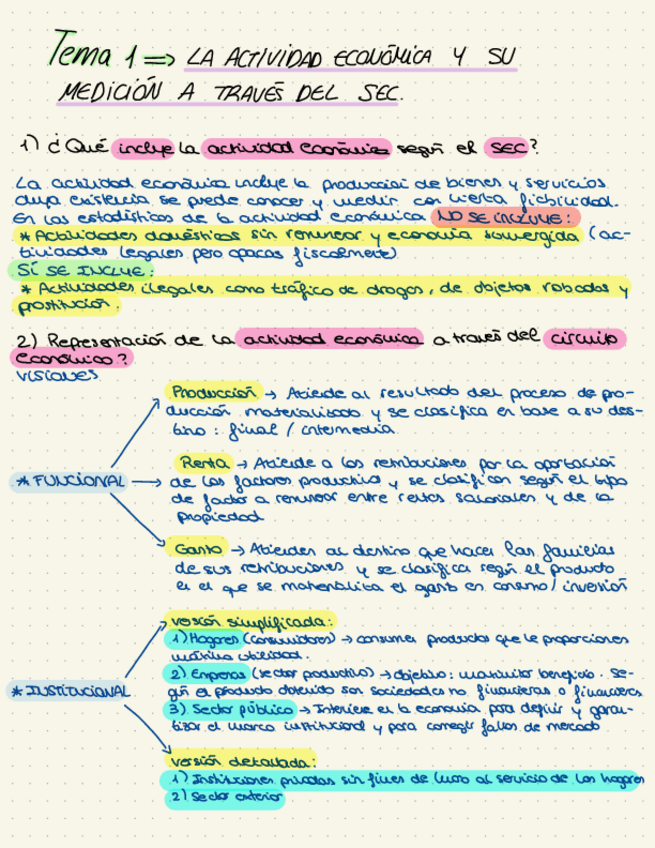 Tema 1 => LA ACTIVIDAD ECONÓMICA Y SU
MEDICIÓN A TRAVÉS DEL SEC.
1) ¿Qué incluye la actividad económica según el SEC?
La actividad económica incluye la producción de bienes y servicios
cuya existencia se puede conocer y medir con cierta fiabilidad.
En las estadísticas de la actividad económica NO SE INCLUYE:
* Actividades domésticas sin remunerar y economía sumergida (ac-
tividades legales pero opacas fiscalmente)
SÍ SE INCLUYE:
* Actividades ilegales como tráfico de drogas, de objetos robados y
prostitución.
2) Representación de la actividad económica a través del circuito
económico?
visiones
* FUNCIONAL
Producción → Atiende al resultado del proceso de pro-
ducción materializado y se clasifica en base a su des-
tino: final / intermedia.
Renta → Atiende a las retribuciones por la aportación
de los factores productivos y se clasifican según el tipo
de factor a remunerar entre rentas salariales y de la
propiedad
Gasto → Atienden al destino que hacen las familias
de sus retribuciones y se clasifica según el producto
en el que se materializa el gasto en consumo / inversión
* INSTITUCIONAL
versión simplificada:
1) Hogares (consumidores) → consumen productos que le proporcionen
máxima utilidad.
2) Empresas (sector productivo) → objetivo: maximizar beneficio. Se-
gún el producto obtenido son sociedades no financieras o financieras
3) Sector público → Interviene en la economía para definir y garan-
tizar el marco institucional y para corregir fallos de mercado
versión detallada:
1) Instituciones privadas sin fines de lucro al servicio de los hogares
2) Sector exterior